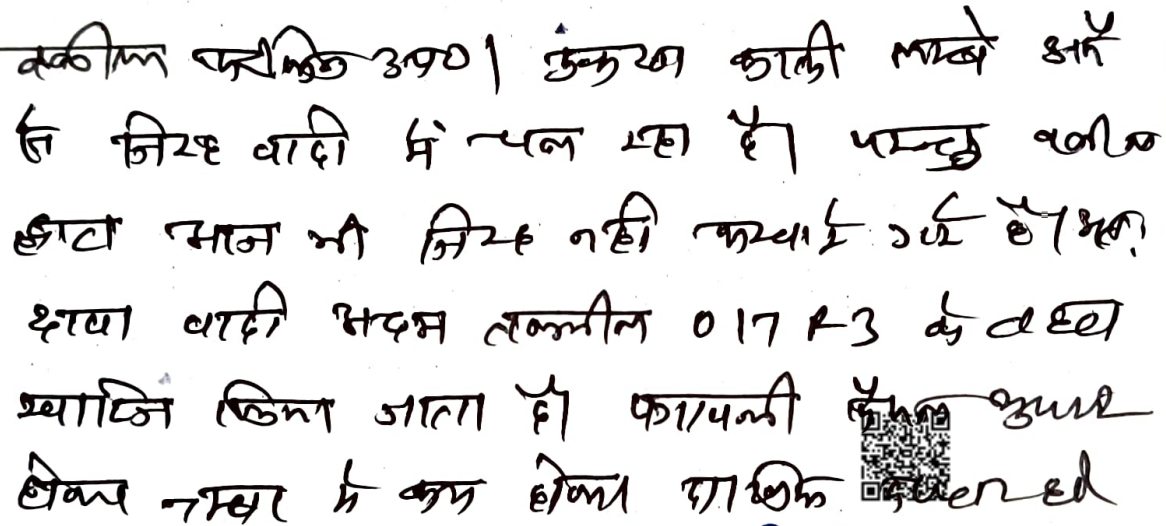 वकील फरीकेन उप0। प्रकरण काफी लम्बे अर्से
से जिरह वादी में चल रहा है। परन्तु वकील
द्वारा आज भी जिरह नही करवाई गई है। अतः
दावा वादी अदम तकमील 017 R-3 के तहत
खारिज किया जाता है। पत्रावली फैसल शुमार
होकर नम्बर से कम होकर दाखिल